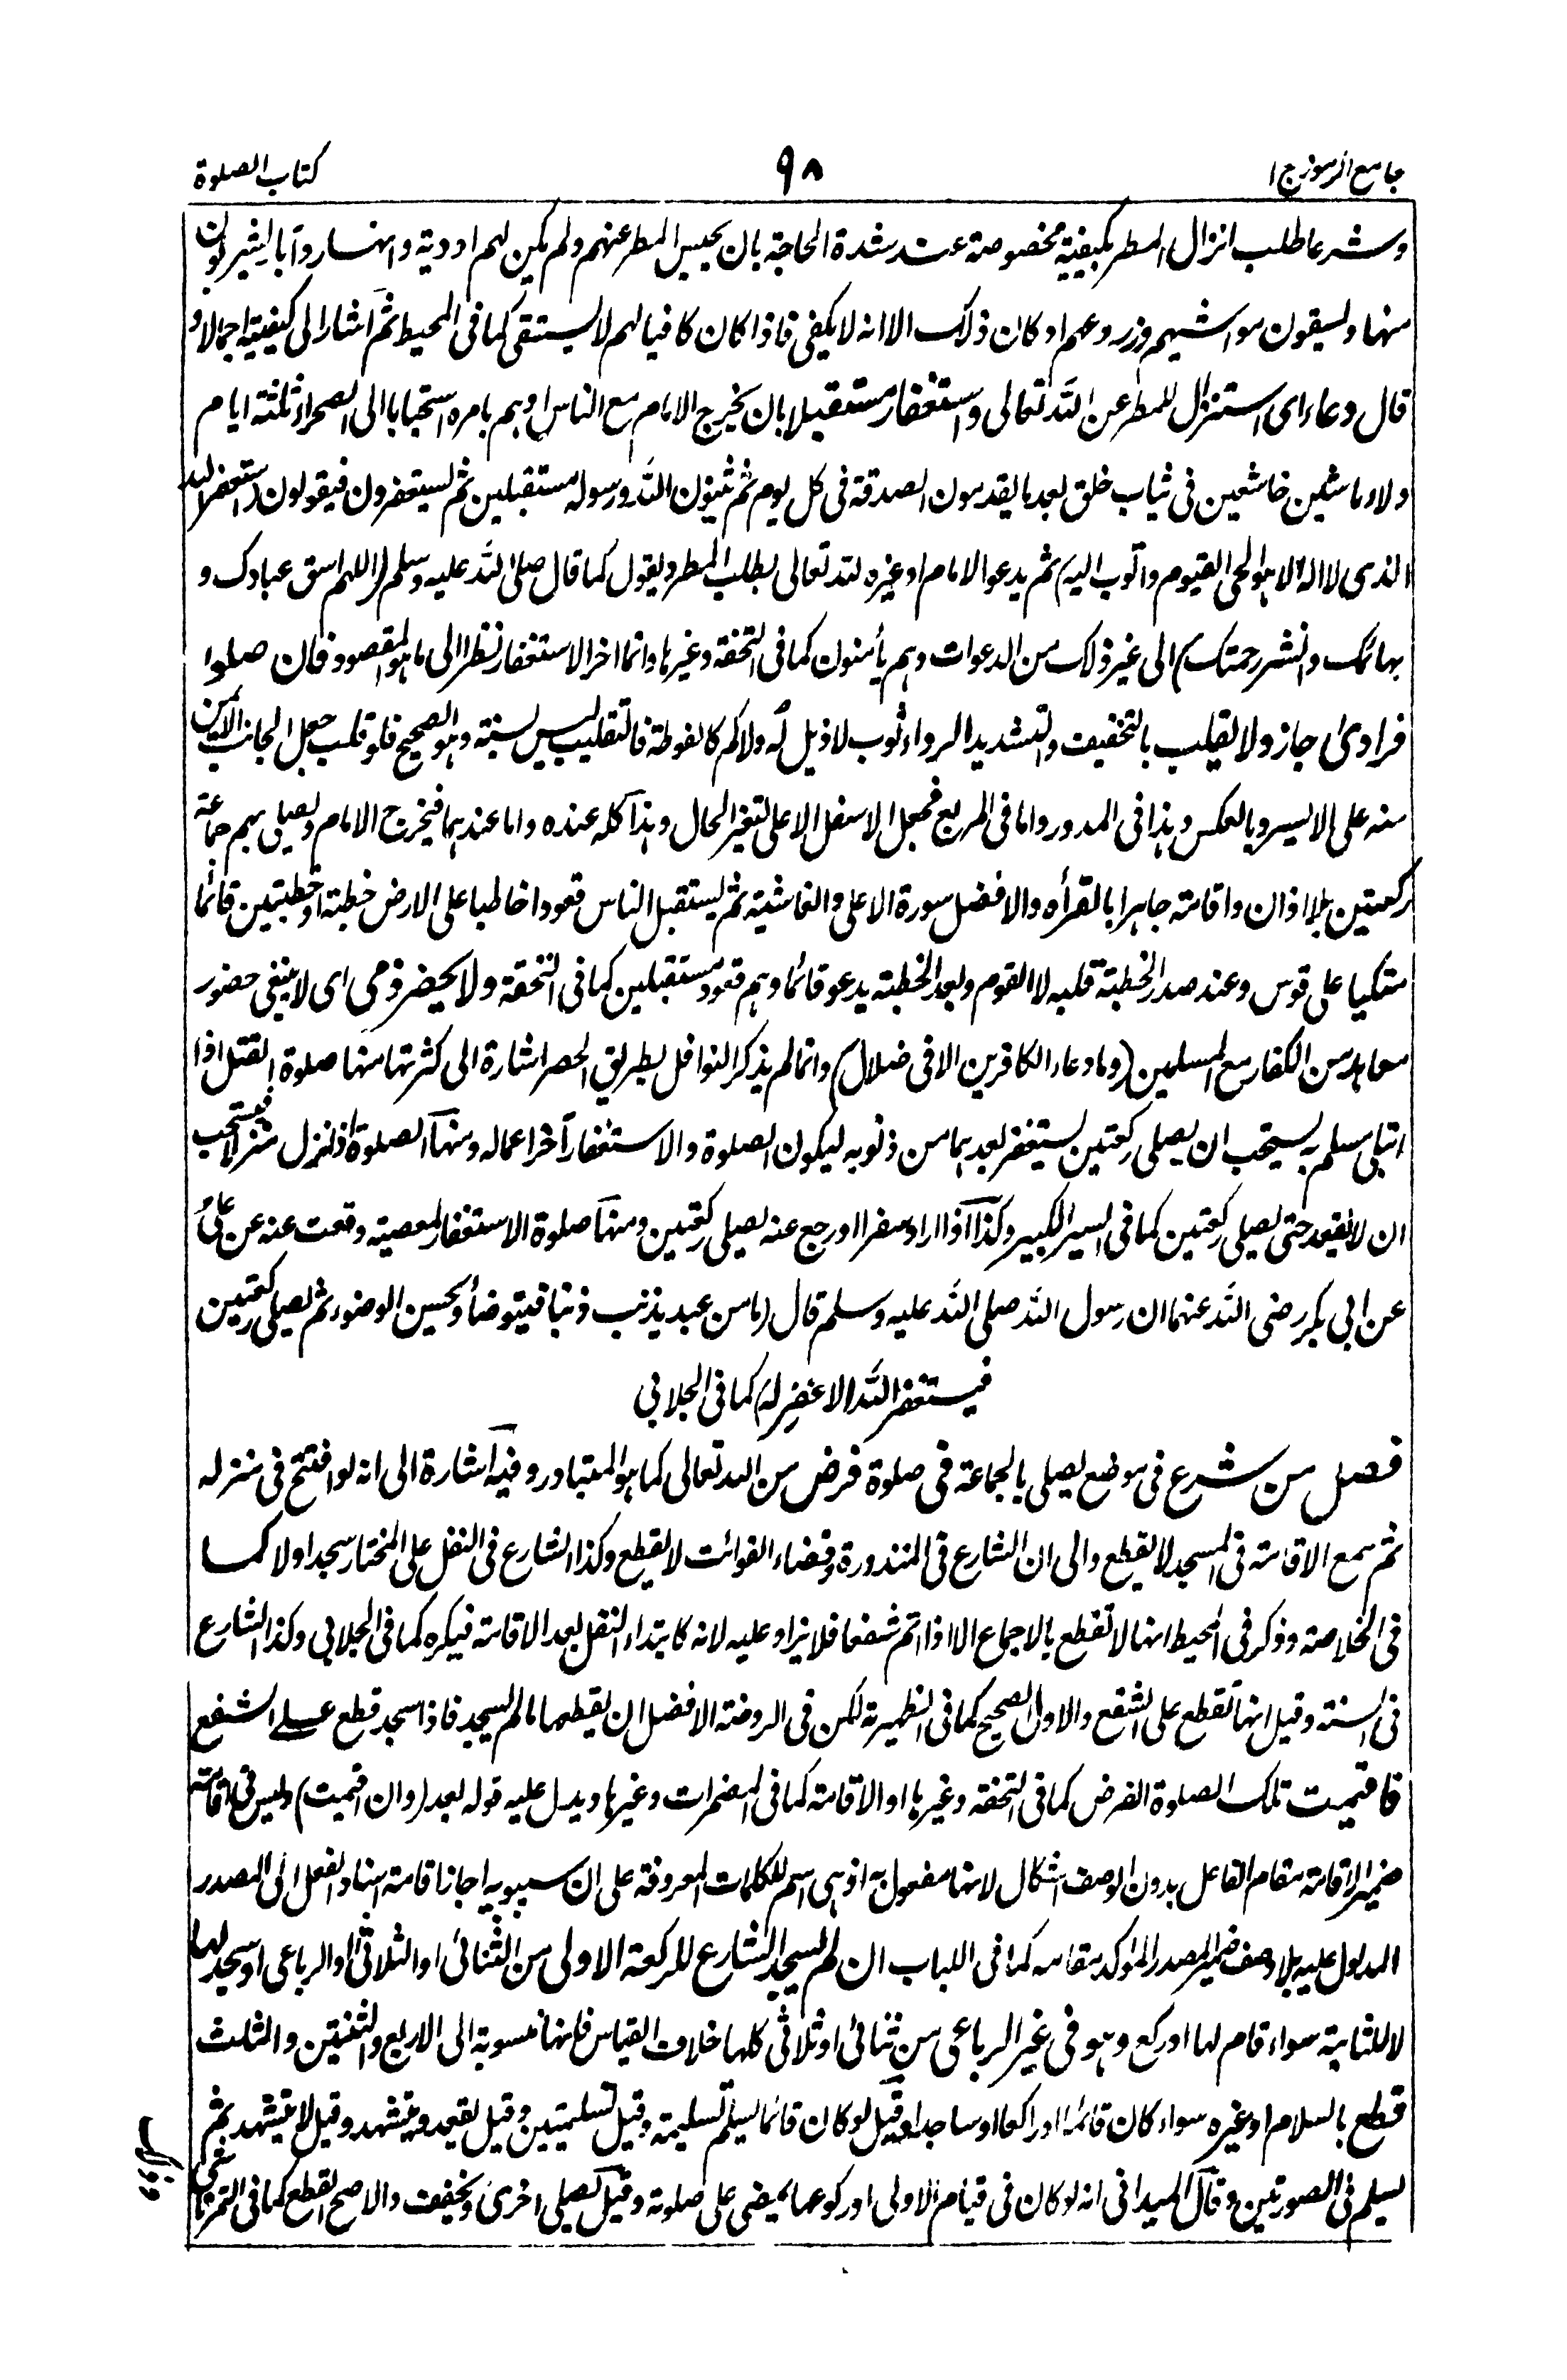 جامع الرموز ج ا
٩٨
كتاب الصلوة
وشرعا طلب انزال المطر بكيفية مخصوصة عند شدة الحاجة بان يحبس المطر عنهم ولم يكن لهم اودية وانهار وآبار يشربون
منها ويسقون مواشيهم وزروعهم او كان ذلك الا انه لا يكفى فاذا كان كافيا لهم لا يستسقى كما فى المحيط ثم اشار الى كيفيته اجمالا و
قال دعاء اى استنزال للمطر عن الله تعالى واستغفار مستقبلا بان يخرج الامام مع الناس او هم بامره استحبابا الى الصحراء ثلثة ايام
ولاء ماشين خاشعين فى ثياب خلق بعد ما يقدمون الصدقة فى كل يوم ثم يثنون الله ورسوله مستقبلين ثم يستغفرون فيقولون (استغفر الله
الذى لا اله الا هو الحى القيوم واتوب اليه) ثم يدعو الامام او غيره لله تعالى بطلب المطر ويقول كما قال صلى الله عليه وسلم (اللهم اسق عبادك و
بهائمك وانشر رحمتك) الى غير ذلك من الدعوات وهم يأمنون كما فى التحفة وغيرها وانما اخر الاستغفار نظرا الى ما هو المقصود فان صلوا
فرادى جاز ولا يقلب بالتخفيف والتشديد الرداء ثوب لا ذيل له ولا كم كالفوطة فالتقليب ليس بسنة وهو الصحيح فلو قلب جعل الجانب الايمن
منه على الايسر وبالعكس وهذا فى المدور واما فى المربع فجعل الاسفل الاعلى لتغير الحال وهذا كله عنده واما عندهما فيخرج الامام ويصلى بهم جماعة
ركعتين بلا اذان واقامة جاهرا بالقرأه والافضل سورة الاعلى والغاشية ثم يستقبل الناس قعودا خاطبا على الارض خطبة او خطبتين قائما
متكيا على قوس وعند صدر الخطبة قلبه لا القوم وبعد الخطبة يدعو قائما وهم قعود مستقبلين كما فى التحفة ولا يحضر ذمى اى لا ينبغى حضور
معاهد من الكفار مع المسلمين (وما دعاء الكافرين الا فى ضلال) وانما لم يذكر النوافل بطريق الحصر اشارة الى كثرتها منها صلوة القتل اذا
ابتلى مسلم به يستحب ان يصلى ركعتين يستغفر بعدهما من ذنوبه ليكون الصلوة والاستغفار آخر اعماله ومنها الصلوة اذا نزل منزلا فيستحب
ان لا يقعد حتى يصلى ركعتين كما فى السير الكبير وكذا اذا اراد سفرا او رجع عنه يصلى ركعتين ومنها صلوة الاستغفار لمعصية وقعت عنه عن على
عن ابى بكر رضى الله عنهما ان رسول الله صلى الله عليه وسلم قال (ما من عبد يذنب ذنبا فيتوضأ ويحسن الوضوء ثم يصلى ركعتين
فيستغفر الله الا غفر له) كما فى الجلابى
فصل من شرع فى موضع يصلى بالجماعة فى صلوة فرض من الله تعالى كما هو المتبادر وفيه اشارة الى انه لو افتتح فى منزله
ثم سمع الاقامة فى المسجد لا يقطع والى ان الشارع فى المنذورة وقضاء الفوائت لا يقطع وكذا الشارع فى النفل على المختار سجد اولا كما
فى الخلاصة وذكر فى المحيط انها لا تقطع بالاجماع الا اذا اتم شفعا فلا يزاد عليه لانه كابتداء النفل بعد الاقامة فيكره كما فى الجلابى وكذا الشارع
فى السنة وقيل انها تقطع على الشفع والاول الصحيح كما فى الظهيرية لكن فى الروضة الافضل ان يقطعها ما لم يسجد فاذا سجد قطع على الشفع
فاقيمت تلك الصلوة الفرض كما فى التحفة وغيرها او الاقامة كما فى المضمرات وغيرها ويدل عليه قوله بعد (وان اقيمت) وليس فى اقامة
ضمير الاقامة مقام الفاعل بدون الوصف اشكال لانها مفعول به اذ هى اسم للكلمات المعروفة على ان سيبويه اجاز اقامة اسناد الفعل الى المصدر
المدلول عليه بلا وصف ضمير المصدر المؤكد مقامه كما فى اللباب ان لم يسجد الشارع للركعة الاولى من الثنائى او الثلاثى او الرباعى او سجد لها
لا للثانية سواء قام لها او ركع وهو فى غير الرباعى من ثنائى او ثلاثى كلها خلاف القياس فانها منسوبة الى الاربع والثنتين والثلث
قطع بالسلام او غيره سواء كان قائما او راكعا او ساجدا وقيل لو كان قائما يسلم تسليمة وقيل تسليمتين وقيل يقعد ويتشهد وقيل لا يتشهد ثم
يسلم فى الصورتين وقال الميدانى انه لو كان فى قيام الاولى او ركوعها يمضى على صلوته وقيل يصلى اخرى ويخفف والاصح القطع كما فى التمرتاشى